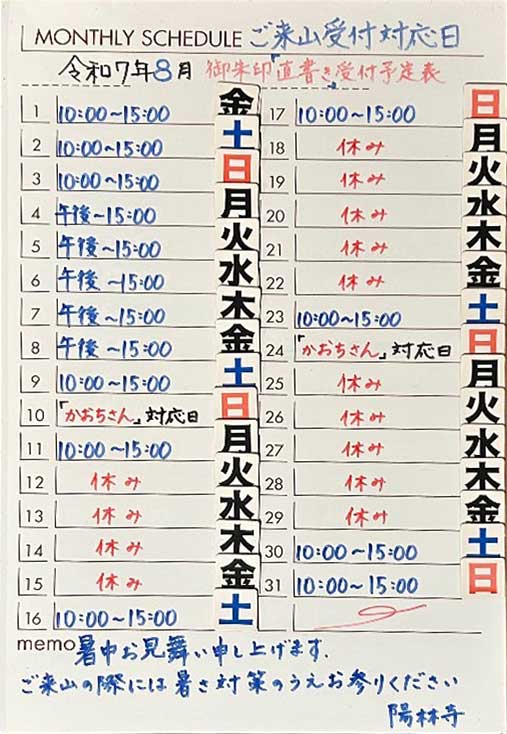 MONTHLY SCHEDULE ご来山受付対応日
令和7年8月 御朱印直書き受付予定表
1 10:00～15:00 金
2 10:00～15:00 土
3 10:00～15:00 日
4 午後～15:00 月
5 午後～15:00 火
6 午後～15:00 水
7 午後～15:00 木
8 午後～15:00 金
9 10:00～15:00 土
10 「かおちさん」対応日 日
11 10:00～15:00 月
12 休み 火
13 休み 水
14 休み 木
15 休み 金
16 10:00～15:00 土
17 10:00～15:00 日
18 休み 月
19 休み 火
20 休み 水
21 休み 木
22 休み 金
23 10:00～15:00 土
24 「かおちさん」対応日 日
25 休み 月
26 休み 火
27 休み 水
28 休み 木
29 休み 金
30 10:00～15:00 土
31 10:00～15:00 日
memo 暑中お見舞い申し上げます.
ご来山の際には暑さ対策のうえお参りください
陽林寺